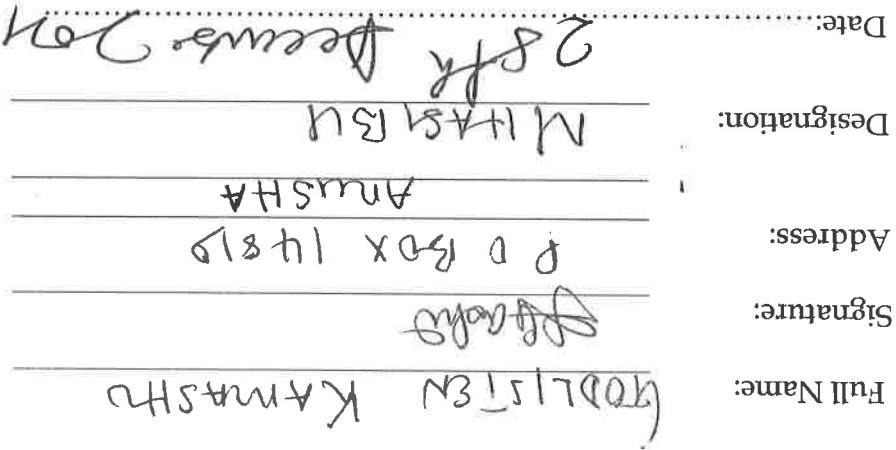 Full Name: GODLISTEN KAMASHO
Signature:
Address: P O BOX 14810
ARUSHA
Designation: MHASIBU
Date: 28th December